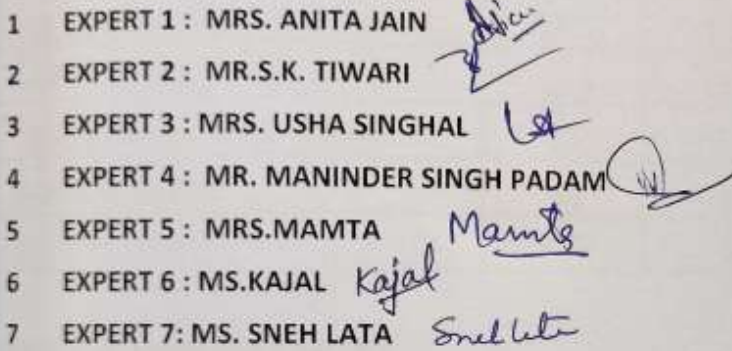 1 EXPERT 1 : MRS. ANITA JAIN
2 EXPERT 2 : MR.S.K. TIWARI
3 EXPERT 3 : MRS. USHA SINGHAL
4 EXPERT 4 : MR. MANINDER SINGH PADAM
5 EXPERT 5 : MRS.MAMTA Mamta
6 EXPERT 6 : MS.KAJAL Kajal
7 EXPERT 7: MS. SNEH LATA Sneh Lata